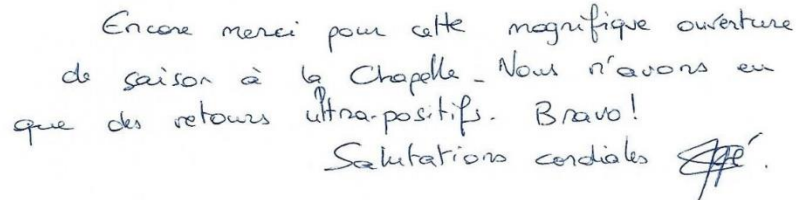 Encore merci pour cette magnifique ouverture
de saison à la Chapelle - Nous n'avons eu
que des retours ultra-positifs. Bravo!
Salutations cordiales